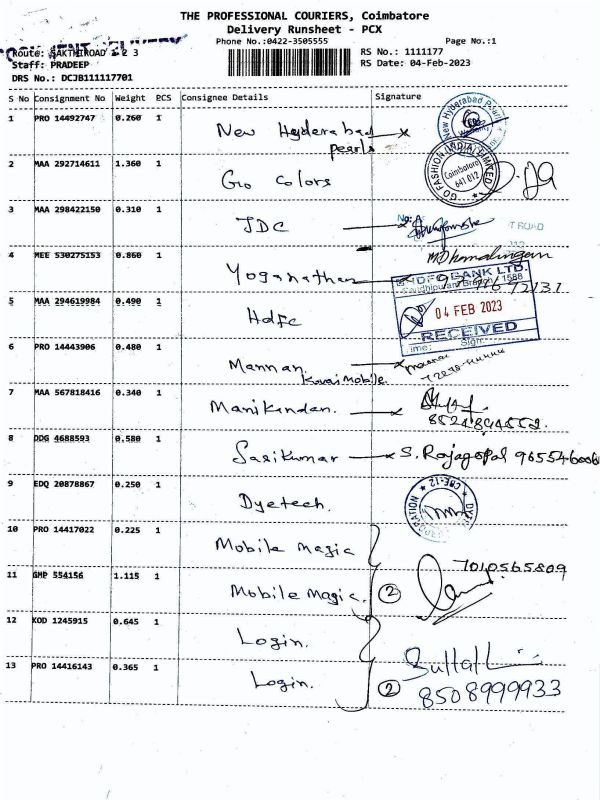 THE PROFESSIONAL COURIERS, Coimbatore
Delivery Runsheet - PCX
Phone No.:0422-3505555 Page No.:1
Route: SAKTHIROAD 1 2 3 RS No.: 1111177
Staff: PRADEEP RS Date: 04-Feb-2023
DRS No.: DCJB111117701
S No Consignment No Weight PCS Consignee Details Signature
1 PRO 14492747 0.260 1 New Hyderabad pearls
2 MAA 292714611 1.360 1 Go Colors
GO FASHION INDIA LIMITED Coimbatore 641 012
3 MAA 298422150 0.310 1 JDC
4 MEE 530275153 0.860 1 Yoganathan
5 MAA 294619984 0.490 1 Hdfc
HDFC BANK LTD.
04 FEB 2023
RECEIVED
6 PRO 14443906 0.480 1 Mannan
Kovai Mobile.
7 MAA 567818416 0.340 1 Manikandan.
8 DDG 4688593 0.580 1 Sasikumar S. Rajagopal
9 EDQ 20878867 0.250 1 Dyetech.
10 PRO 14417022 0.225 1 Mobile Magic
11 GMP 554156 1.115 1 Mobile Magic. 2 7010565809
12 KOD 1245915 0.645 1 Login.
13 PRO 14416143 0.365 1 Login. 2 8508999933